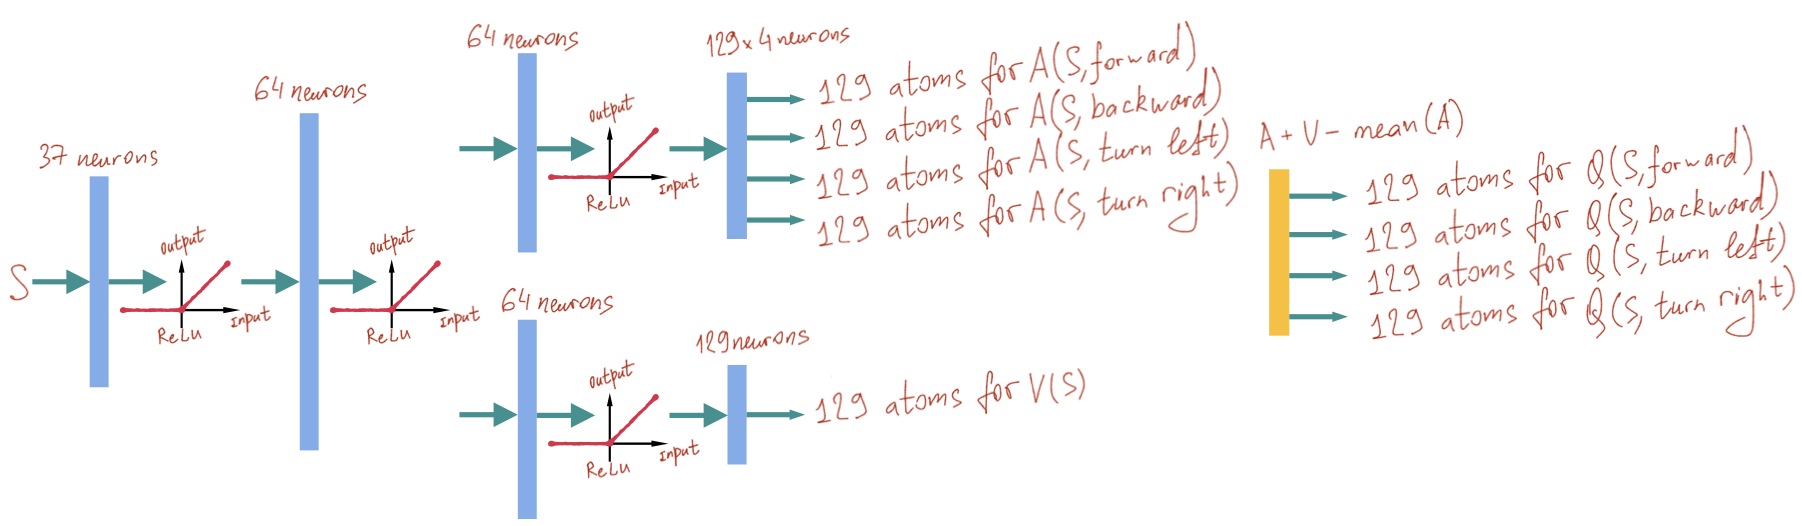 S
37 neurons
output
Input
ReLu
64 neurons
output
Input
ReLu
64 neurons
output
Input
ReLu
129 x 4 neurons
129 atoms for A(S, forward)
129 atoms for A(S, backward)
129 atoms for A(S, turn left)
129 atoms for A(S, turn right)
64 neurons
output
Input
ReLu
129 neurons
129 atoms for V(S)
A + V - mean(A)
129 atoms for Q(S, forward)
129 atoms for Q(S, backward)
129 atoms for Q(S, turn left)
129 atoms for Q(S, turn right)